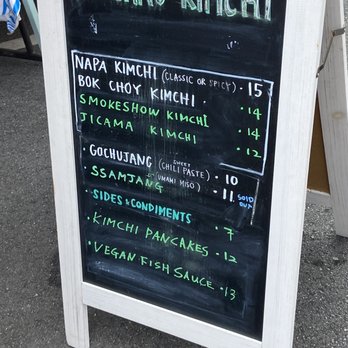 KIMCHI
NAPA KIMCHI (CLASSIC OR SPICY) · 15
BOK CHOY KIMCHI · 14
SMOKESHOW KIMCHI · 14
JICAMA KIMCHI · 12
· GOCHUJANG (SWEET CHILI PASTE) · 10
· SSAMJANG (UMAMI MISO) · 11 SOLD OUT
· SIDES & CONDIMENTS · 7
· KIMCHI PANCAKES · 12
· VEGAN FISH SAUCE · 13